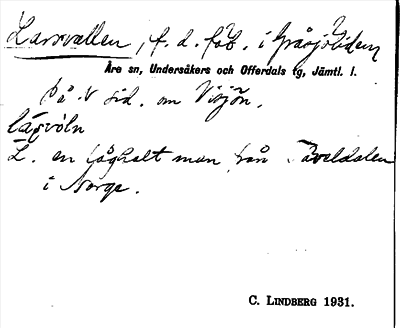 Larsvallen, f. d. fäb. i Gråsjöliden
Åre sn, Undersåkers och Offerdals tg, Jämtl. l.
på v sid. om Visjön.
L. en låghalt man från
i Norge.
C. LINDBERG 1931.